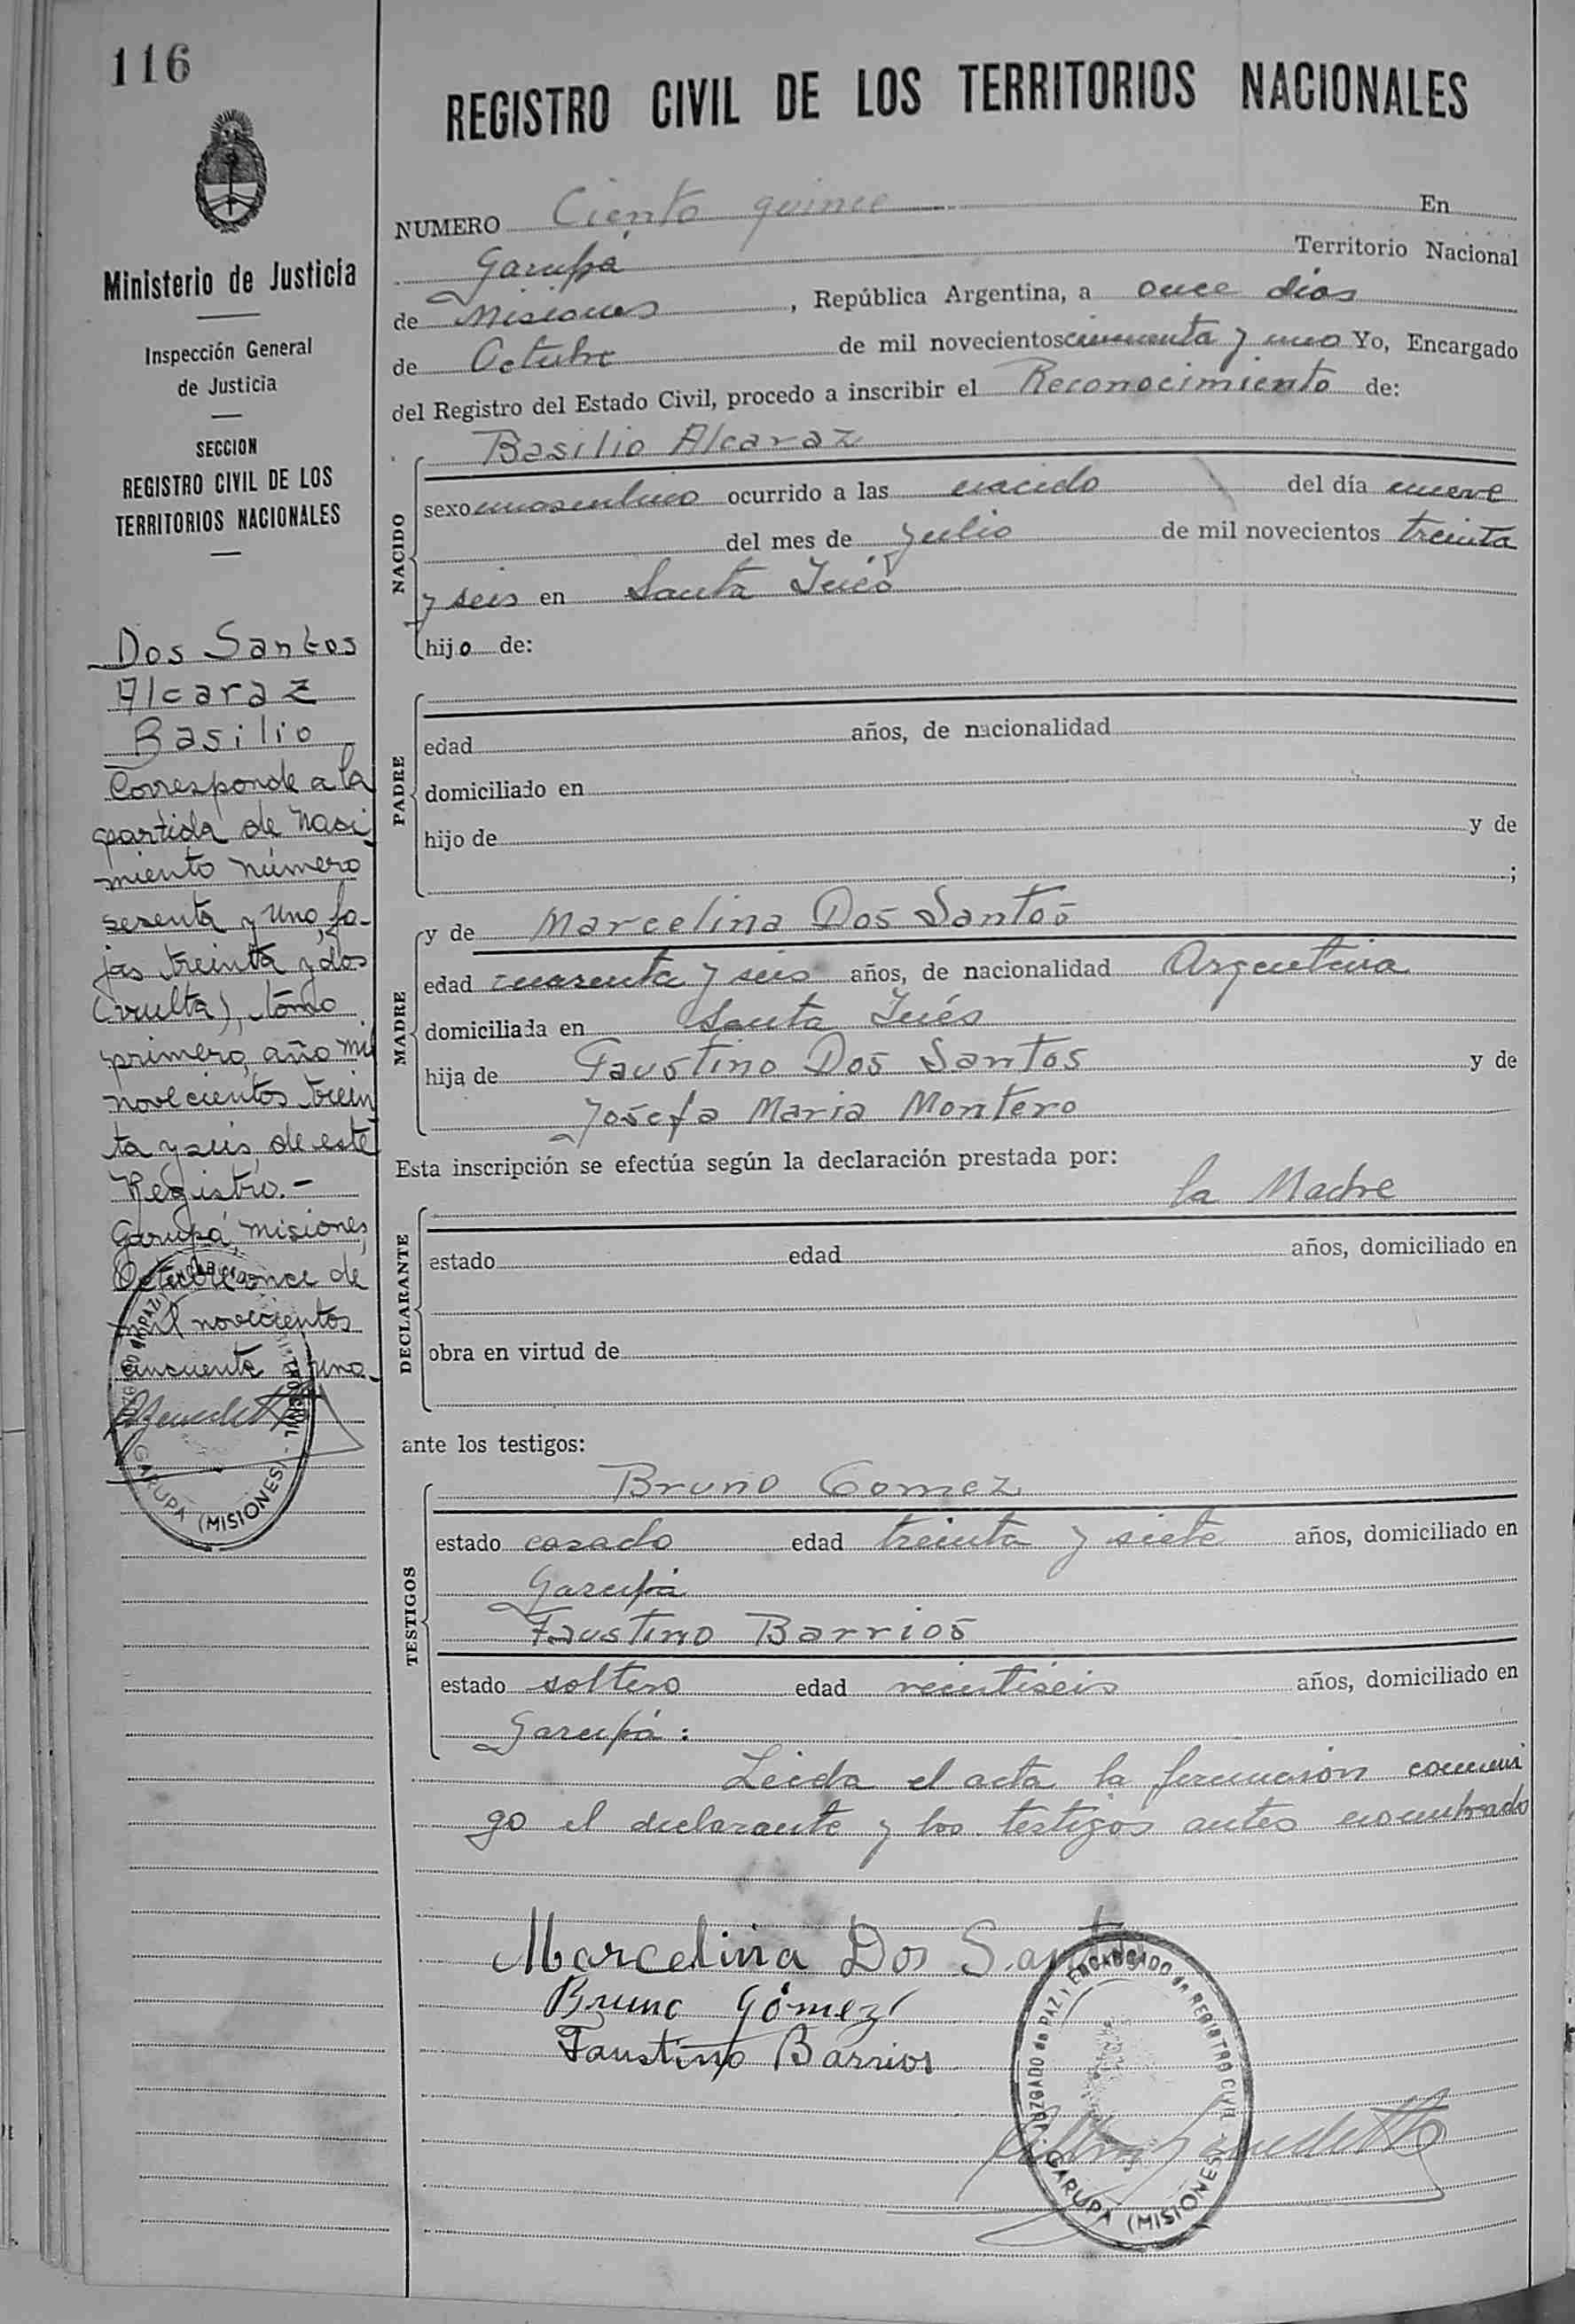 116
Ministerio de Justicia
Inspección General
de Justicia
SECCION
REGISTRO CIVIL DE LOS
TERRITORIOS NACIONALES
Dos Santos
Alcaraz
Basilio
Corresponde a la
partida de Naci
miento número
sesenta y uno, fo-
jas treinta y dos
(vuelta), tomo
primero, año mil
novecientos trein
ta y seis, de este
Registro.-
Garupá, Misiones,
Octubre once de
mil novecientos
cincuenta y uno.
GARUPA (MISIONES)
REGISTRO CIVIL DE LOS TERRITORIOS NACIONALES
NUMERO Ciento quince En
Garupá Territorio Nacional
de Misiones, República Argentina, a once dias
de Octubre de mil novecientos cincuenta y uno Yo, Encargado
del Registro del Estado Civil, procedo a inscribir el Reconocimiento de:
Basilio Alcaraz
NACIDO
sexo masculino ocurrido a las nacido del día nueve
del mes de Julio de mil novecientos treinta
y seis en Santa Inés
hijo de:
PADRE
edad años, de nacionalidad
domiciliado en
hijo de y de
;
MADRE
y de Marcelina Dos Santos
edad cuarenta y seis años, de nacionalidad Argentina
domiciliada en Santa Inés
hija de Faustino Dos Santos y de
Josefa Maria Montero
Esta inscripción se efectúa según la declaración prestada por:
la Madre
DECLARANTE
estado edad años, domiciliado en
obra en virtud de
ante los testigos:
TESTIGOS
Bruno Gomez
estado casado edad treinta y siete años, domiciliado en
Garupá
Faustino Barrios
estado soltero edad veintiseis años, domiciliado en
Garupá:
Leida el acta la firmaron conmi
go el declarante y los testigos antes nombrado
Marcelina Dos Santos
Bruno Gómez
Faustino Barrios
JUZGADO de PAZ y ENCARGADO de REGISTRO CIVIL - GARUPA (MISIONES)